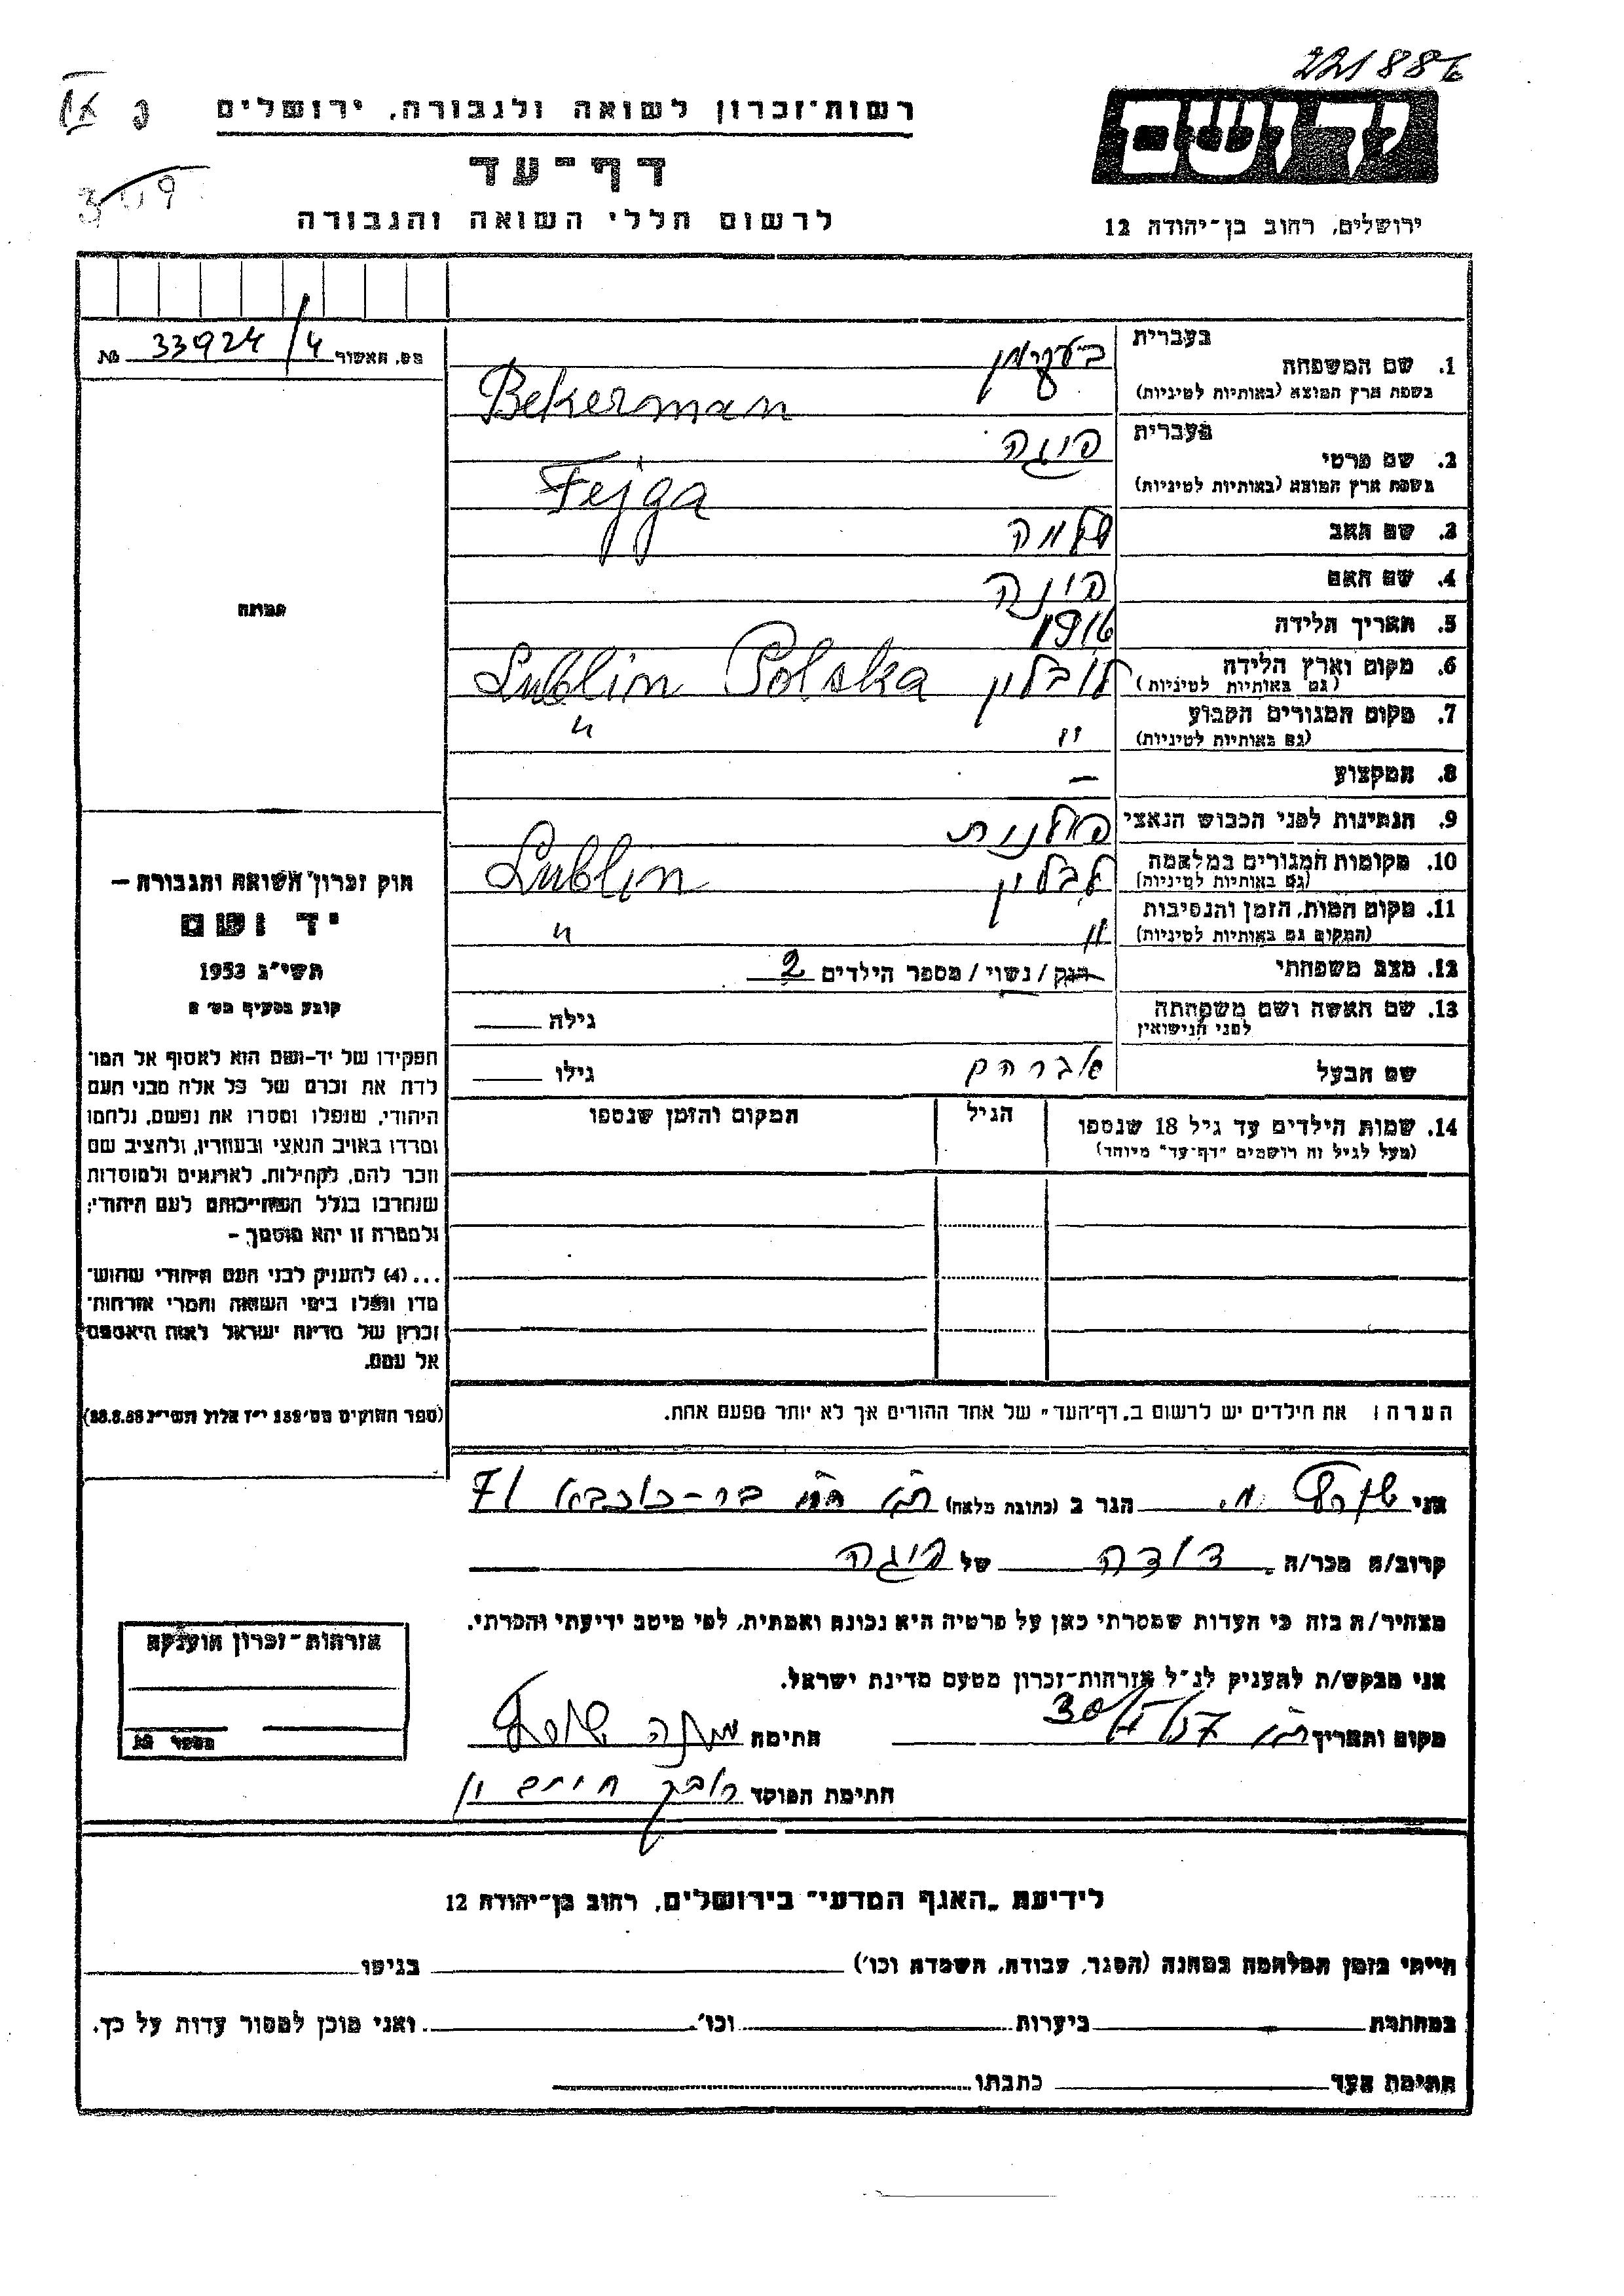 221886
רשות־זכרון לשואה ולגבורה, ירושלים
דף־עד
לרשום חללי השואה והגבורה
יד ושם
ירושלים, רחוב בן־יהודה 12
309
מס. האשור 33924/4 №
1. שם המשפחה
בעברית בעקרמן
בשפת ארץ המוצא (באותיות לטיניות) Bekerman
2. שם פרטי
בעברית פיגה
בשפת ארץ המוצא (באותיות לטיניות) Fejga
3. שם האב שלמה
4. שם האם
5. תאריך הלידה 1916
6. מקום וארץ הלידה לובלין Lublin Polska
(גם באותיות לטיניות)
7. מקום המגורים הקבוע " "
(גם באותיות לטיניות)
8. המקצוע —
9. הנתינות לפני הכבוש הנאצי פולנית
10. מקומות המגורים במלחמה לבלין Lublin
(גם באותיות לטיניות)
11. מקום המות, הזמן והנסיבות " "
(המקום גם באותיות לטיניות)
12. מצב משפחתי רווק / נשוי / מספר הילדים 2
13. שם האשה ושם משפחתה גילה
לפני הנישואין
שם הבעל אברהם גילו
14. שמות הילדים עד גיל 18 שנספו הגיל המקום והזמן שנספו
(מעל לגיל זה רושמים "דף־עד" מיוחד)
תמונה
חוק זכרון השואה והגבורה —
יד ושם
תשי"ג 1953
קובע בסעיף מס' 2
תפקידו של יד־ושם הוא לאסוף אל המו־
לדת את זכרם של כל אלה מבני העם
היהודי, שנפלו ומסרו את נפשם, נלחמו
ומרדו באויב הנאצי ובעוזריו, ולהציב שם
וזכר להם, לקהילות, לארגונים ולמוסדות
שנחרבו בגלל השתייכותם לעם היהודי;
ולמטרה זו יהא מוסמך —
...(4) להעניק לבני העם היהודי שהוש־
מדו ונפלו בימי השואה והמרי אזרחות־
זכרון של מדינת ישראל לאות היאספם
אל עמם.
(ספר החוקים מס' 132 י"ז אלול תשי"ג 28.8.53)
הערה: את הילדים יש לרשום ב"דף־העד" של אחד ההורים אך לא יותר מפעם אחת.
אני הגר ב (כתובת מלאה) בר־כוכבא 71
קרוב/ה מכר/ה דודה של פיגה
מצהיר/ה בזה כי העדות שמסרתי כאן על פרטיה היא נכונה ואמתית, לפי מיטב ידיעתי והכרתי.
אני מבקש/ת להעניק לנ"ל אזרחות־זכרון מטעם מדינת ישראל.
מקום ותאריך 30 חתימה
חתימת הפוקד
אזרחות־זכרון הוענקה
מספר №
לידיעת "האגף המדעי" בירושלים, רחוב בן־יהודה 12
הייתי בזמן המלחמה במחנה (הסגר, עבודה, השמדה וכו') בגיטו
במחתרת ביערות וכו' ואני מוכן למסור עדות על כך.
חתימת העד כתבתו